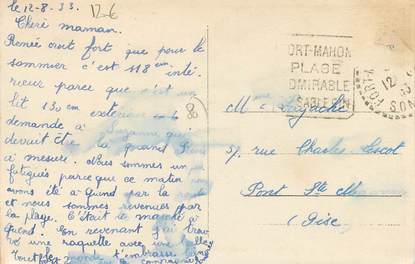 le 12-8.33.
12-6
Chère maman.
Renée croit fort que pour le
sommier c'est 118 cm inté
rieur parce que c'est un
lit 130 cm extérieur
demande à Suzanne qui
devait être la quand
a mesuré. Nous sommes un
fatigués parce que ce matin
avons été à Quend par la
et nous sommes revenues par
la plage. C'était le marché à
Quend. En revenant j'ai trou
vé une raquette avec une balle
Tout le monde t'embrasse
80
ORT-MAHON
PLAGE
DMIRABLE
SABLE FIN
FORT
12
33
M
5, rue Charles Lescot
Pont Ste Maxence
(Oise)